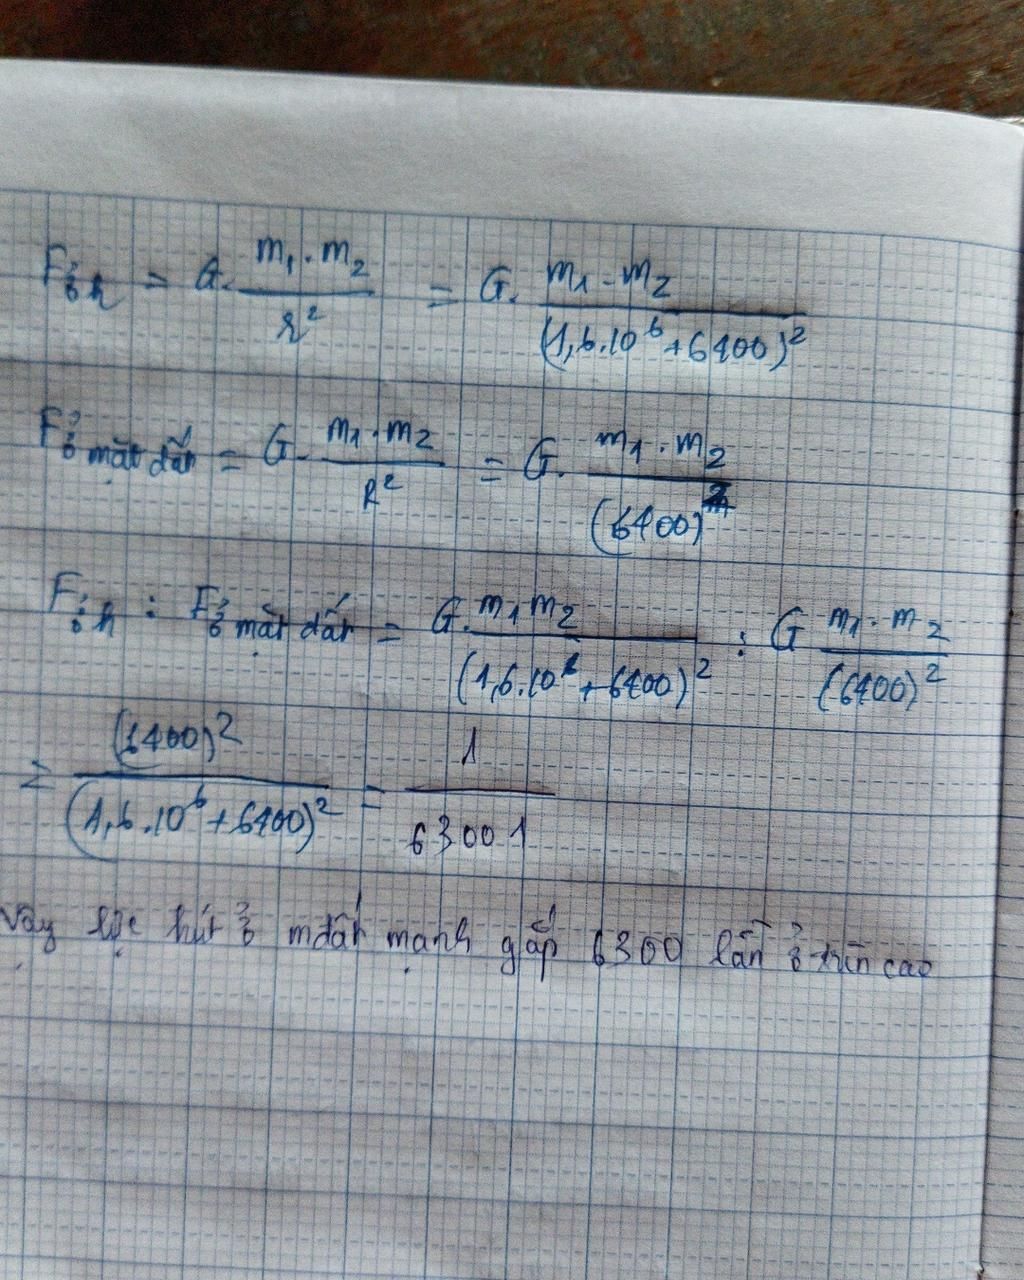 F ở h = G. m₁.m₂ / r² = G. m₁.m₂ / (1,6.10⁶+6400)²
F ở mặt đất = G. m₁.m₂ / R² = G. m₁.m₂ / (6400)²
F ở h : F ở mặt đất = G. m₁m₂ / (1,6.10⁶+6400)² : G m₁.m₂ / (6400)²
= (6400)² / (1,6.10⁶+6400)² = 1 / 63001
Vậy lực hút ở mđất mạnh gấp 6300 lần ở trên cao